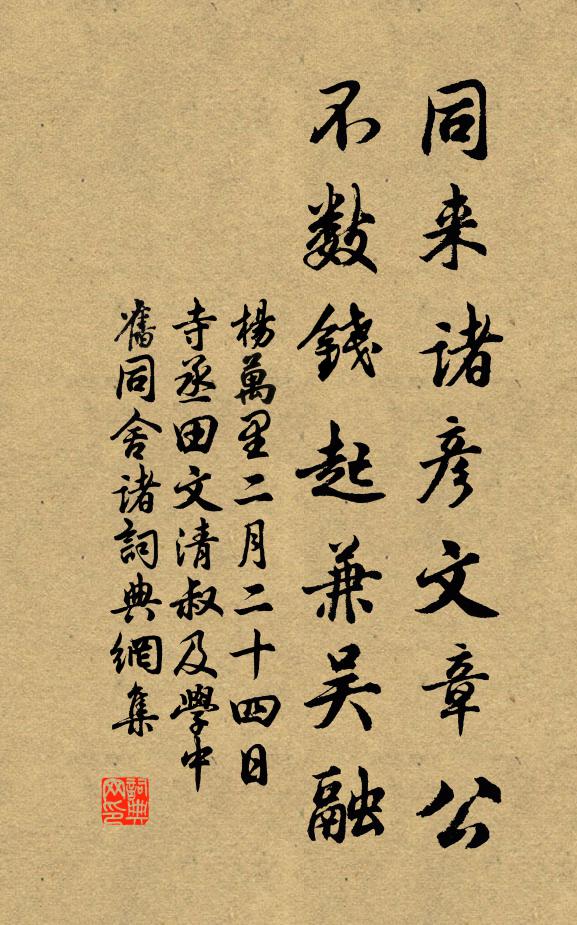 同来诸彦文章公
不数钱起兼吴融
楊萬里二月二十四日
寺丞田文清叔及學中
舊同舍诸詞典網集
詞典
网印